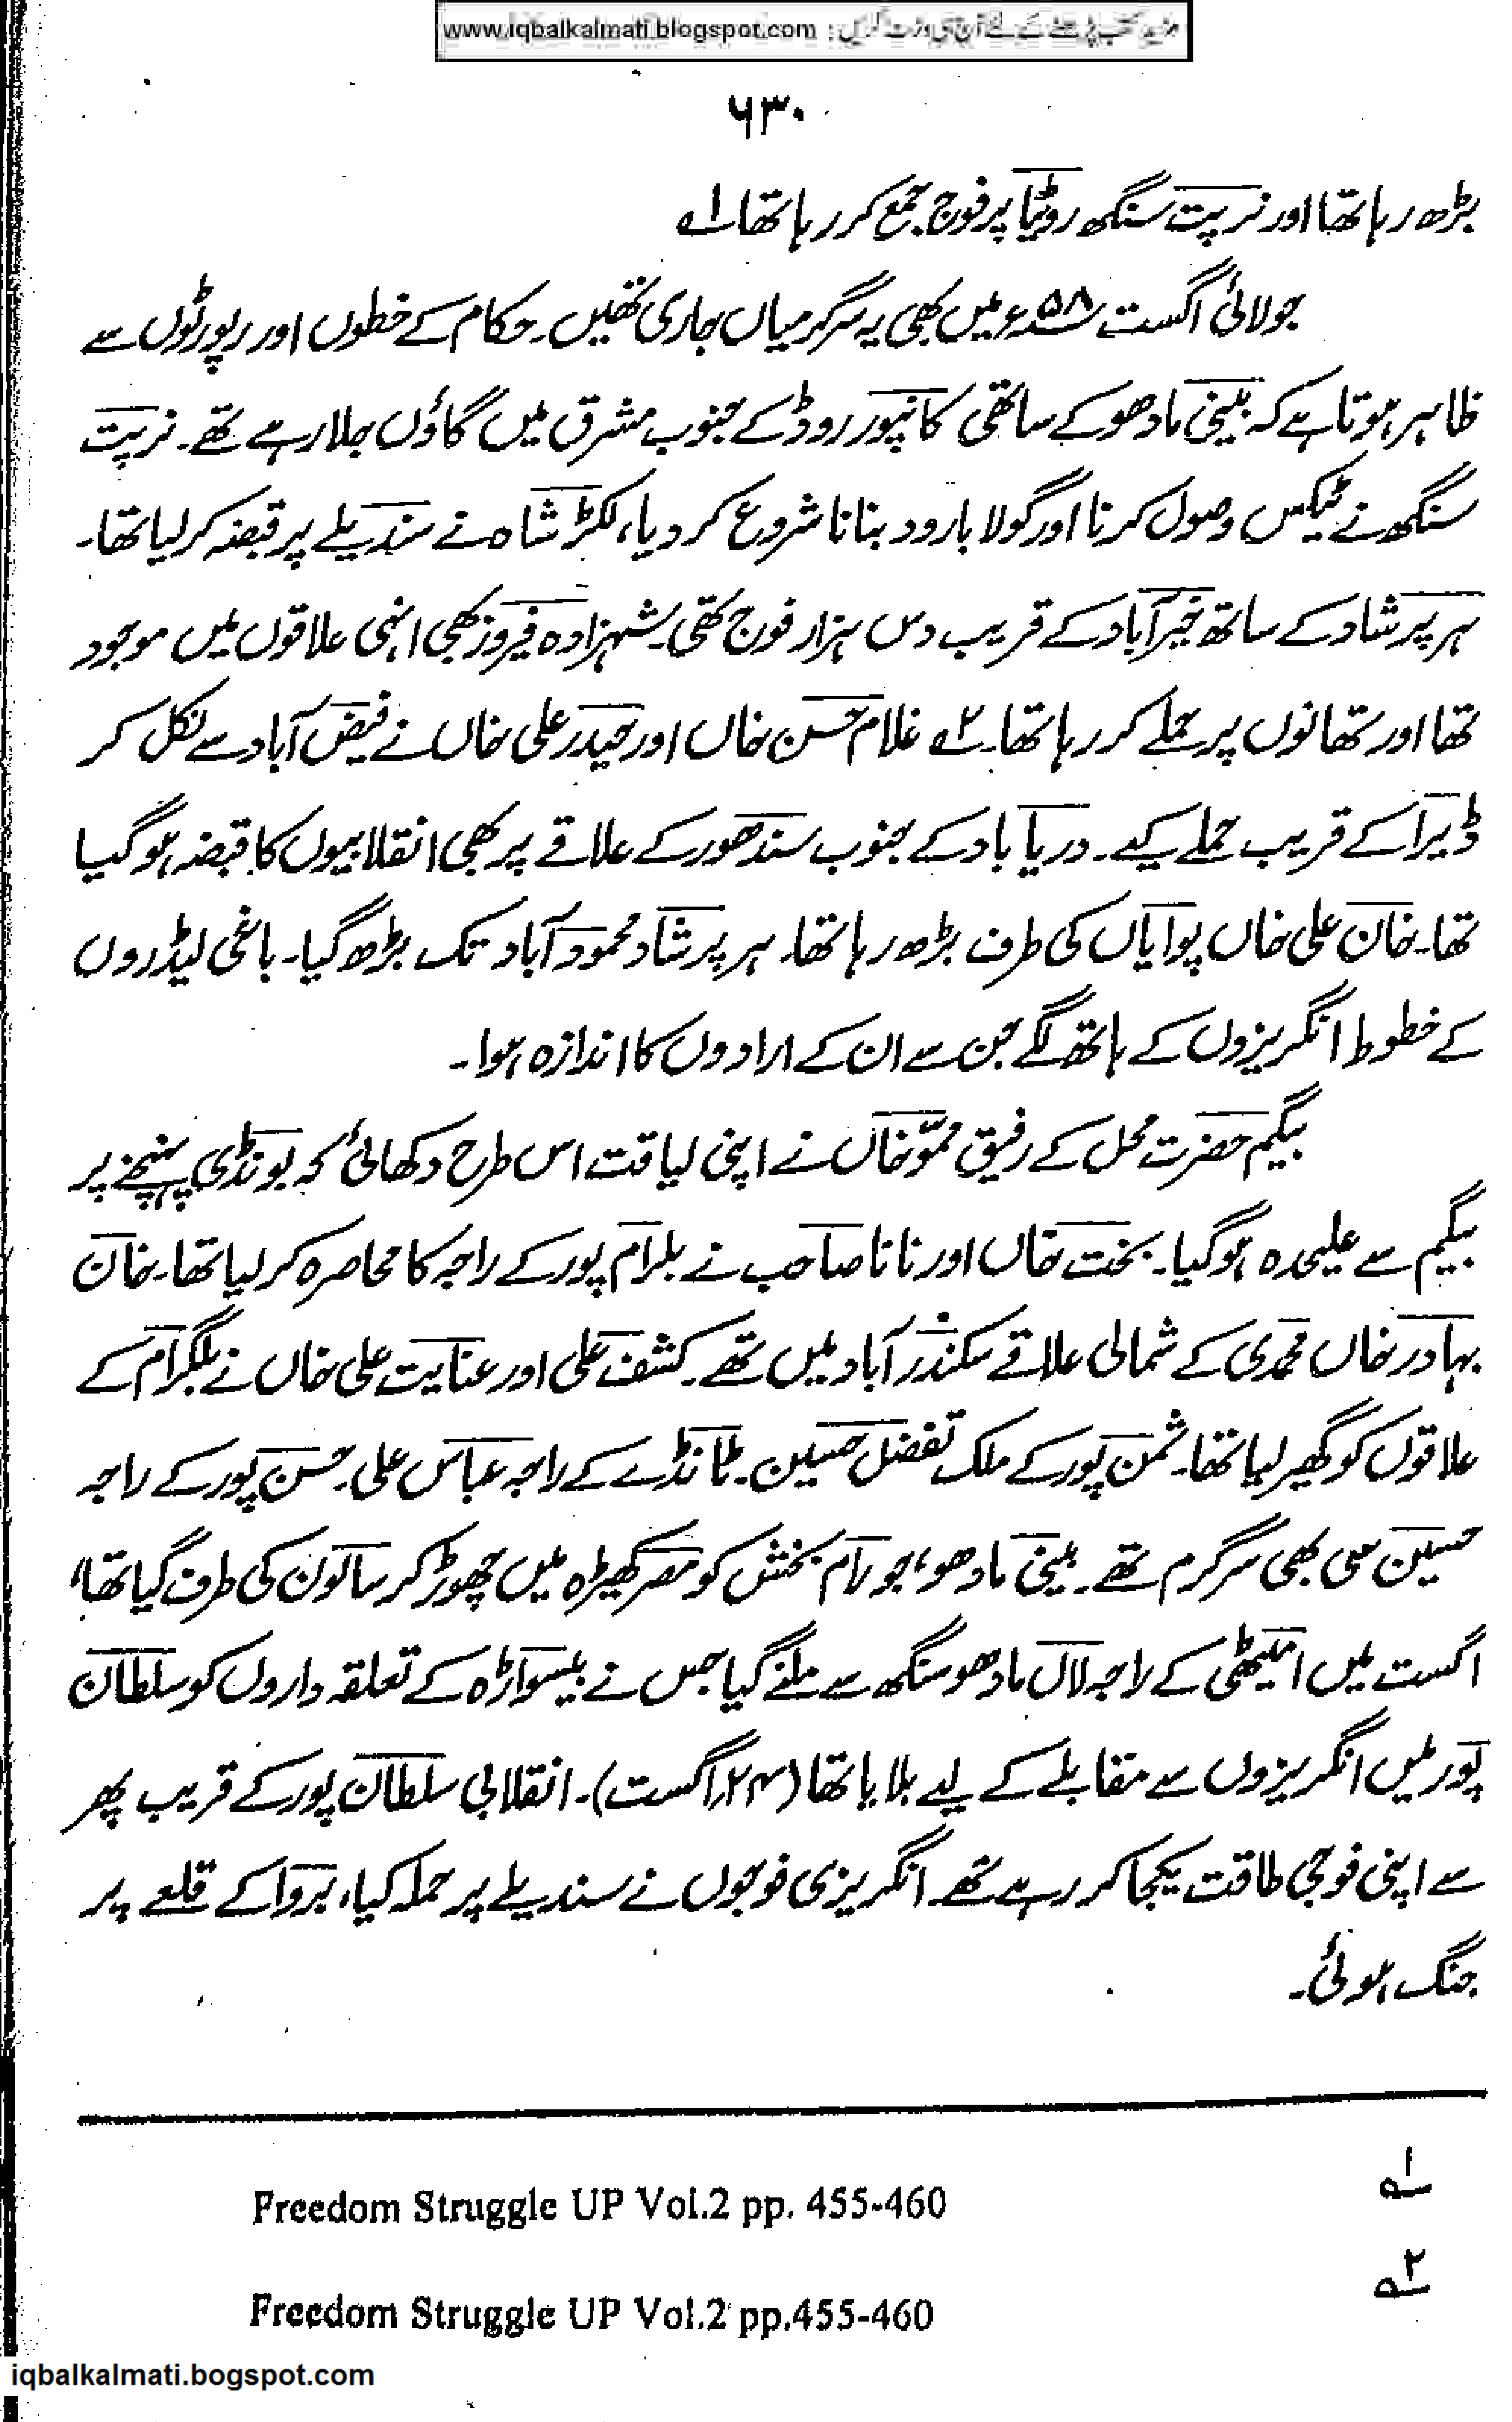 مزید کتب پڑھنے کے لئے آج ہی وزٹ کریں : www.iqbalkalmati.blogspot.com
۶۳۰
بڑھ رہا تھا اور نرپت سنگھ روئیا پر فوج جمع کر رہا تھا۔۱؎
جولائی اگست ۵۸ء میں بھی یہ سرگرمیاں جاری تھیں۔ حکام کے خطوں اور رپورٹوں سے
ظاہر ہوتا ہے کہ بینی مادھو کے ساتھی کانپور روڈ کے جنوب مشرق میں گاؤں جلا رہے تھے۔ نرپت
سنگھ نے ٹیکس وصول کرنا اور گولا بارود بنانا شروع کر دیا، لکڑ شاہ نے سندیلے پر قبضہ کر لیا تھا۔
ہر پرشاد کے ساتھ خیرآباد کے قریب دس ہزار فوج تھی۔ شہزادہ فیروز بھی انہی علاقوں میں موجود
تھا اور تھانوں پر حملے کر رہا تھا۔۲؎ غلام حسن خاں اور حیدر علی خاں نے فیض آباد سے نکل کر
ڈیرا کے قریب حملے کیے۔ دریا باد کے جنوب سندھور کے علاقے پر بھی انقلابیوں کا قبضہ ہو گیا
تھا۔ خان علی خاں پوایاں کی طرف بڑھ رہا تھا۔ ہر پرشاد محمود آباد تک بڑھ گیا۔ باغی لیڈروں
کے خطوط انگریزوں کے ہاتھ لگے جن سے ان کے ارادوں کا اندازہ ہوا۔
بیگم حضرت محل کے رفیق ممّو خاں نے اپنی لیاقت اس طرح دکھائی کہ بونڈی پہنچنے پر
بیگم سے علیحدہ ہو گیا۔ بخت خاں اور نانا صاحب نے بلرام پور کے راجہ کا محاصرہ کر لیا تھا۔ خان
بہادر خاں محمدی کے شمالی علاقے سکندر آباد میں تھے۔ کشف علی اور عنایت علی خاں نے بلگرام کے
علاقوں کو گھیر لیا تھا۔ ثمن پور کے ملک تفضل حسین۔ ٹانڈے کے راجہ عباس علی۔ حسن پور کے راجہ
حسین علی بھی سرگرم تھے۔ بینی مادھو، جو رام بخش کو مصر کھیڑہ میں چھوڑ کر سالون کی طرف گیا تھا،
اگست میں امیٹھی کے راجہ لال مادھو سنگھ سے ملنے گیا جس نے بیسواڑہ کے تعلقہ داروں کو سلطان
پور میں انگریزوں سے مقابلے کے لیے بلایا تھا (۲۴؍اگست)۔ انقلابی سلطان پور کے قریب پھر
سے اپنی فوجی طاقت یکجا کر رہے تھے۔ انگریزی فوجوں نے سندیلے پر حملہ کیا، بروا کے قلعے پر
جنگ ہوئی۔
۱؎ Freedom Struggle UP Vol.2 pp. 455-460
۲؎ Freedom Struggle UP Vol.2 pp.455-460
iqbalkalmati.bogspot.com